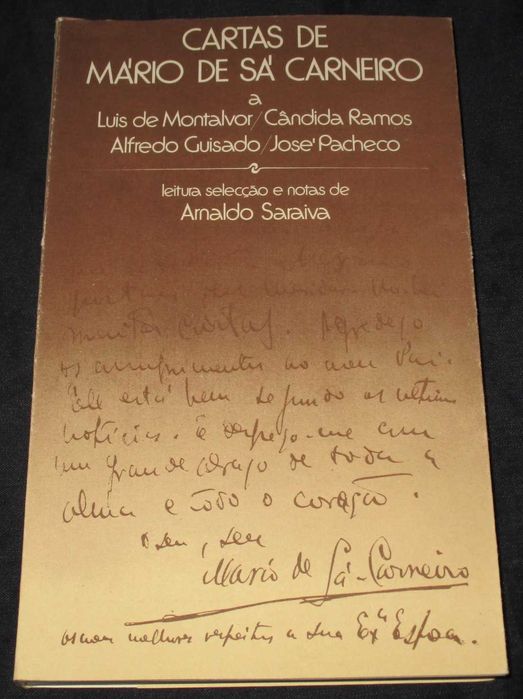 CARTAS DE
MÁRIO DE SÁ CARNEIRO
a
Luis de Montalvor/Cândida Ramos
Alfredo Guisado/José Pacheco
leitura selecção e notas de
Arnaldo Saraiva
muitas cartas. Agradeço
os cumprimentos ao meu Pai.
Ele está bem segundo as ultimas
notícias. E despeço-me com
um grande abraço de toda a
alma e todo o coração.
o seu, seu
Mario de Sá-Carneiro
os meus melhores respeitos a sua Exª Esposa.